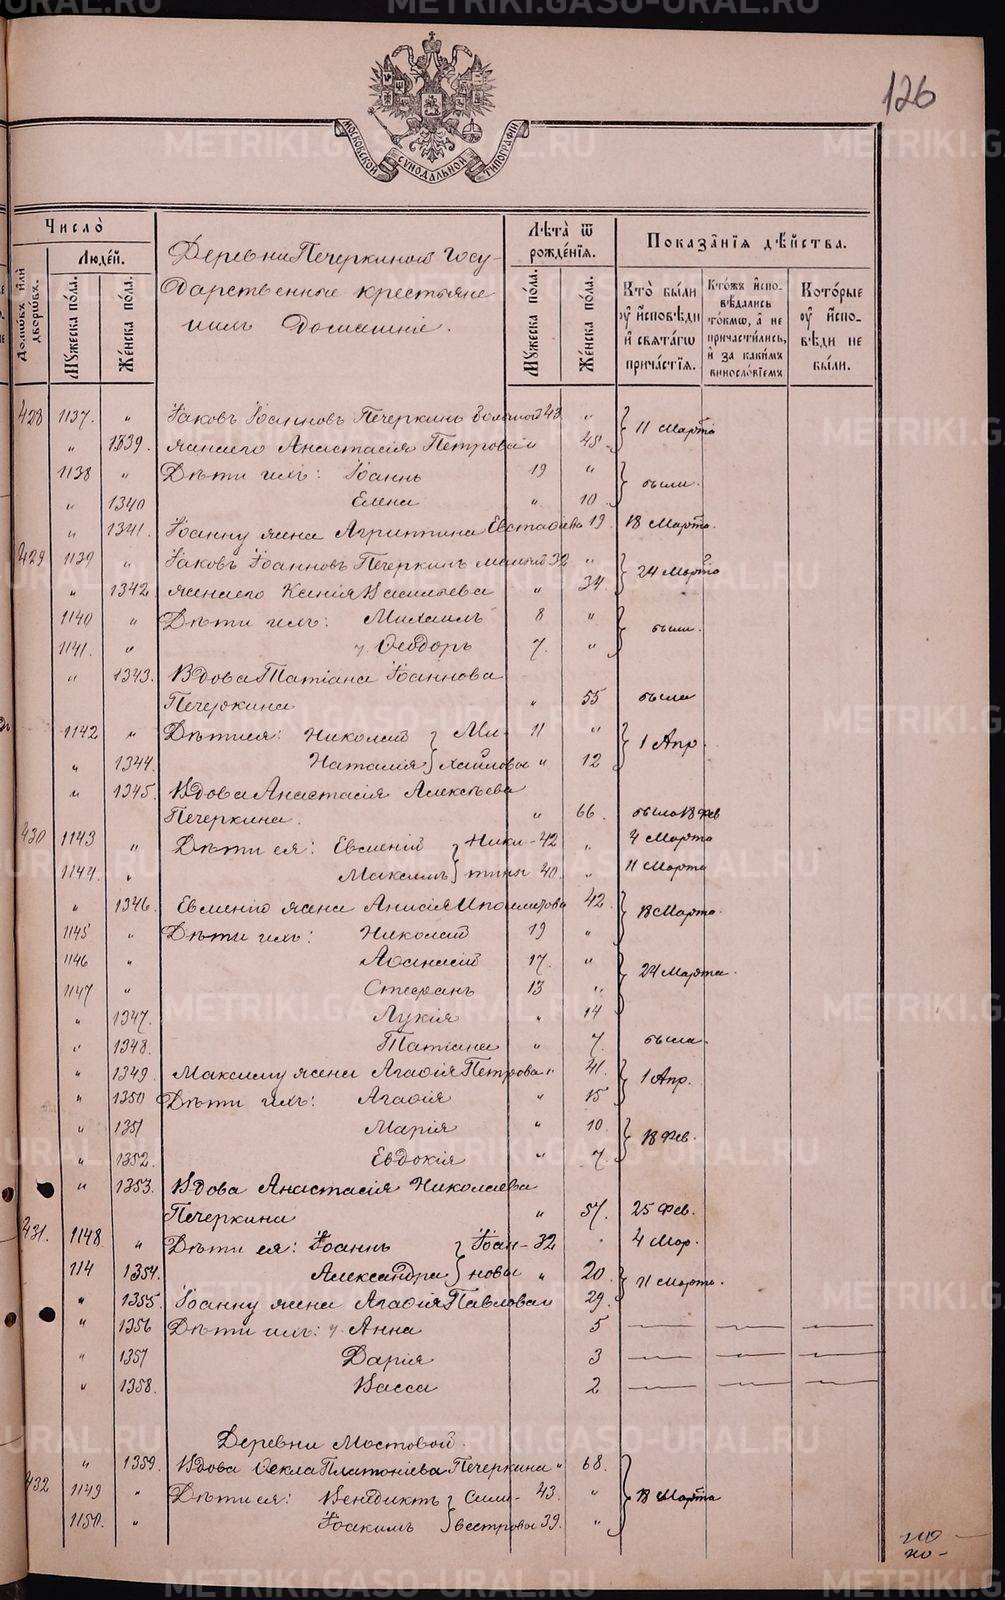 METRIKI.GASO-URAL.RU
126
МОСКОВСКОЙ СУНОДАЛЬНОЙ ТИПОГРАФІИ
Число̀
Люде́й.
Домѡ́въ и҆лѝ дворѡ́въ.
Мꙋ́жеска по́ла.
Же́нска по́ла.
Деревни Печеркиной Госу-
дарственные крестьяне
ихъ домашніе.
Лѣ́та ѿ рожде́нїѧ.
Мꙋ́жеска по́ла.
Же́нска по́ла.
Показа̑нїѧ дѣ́йства.
Кто̀ бы́ли ᲂу҆ и҆́сповѣди и҆ ст҃а́гѡ прича́стїѧ.
Кто́жъ и҆спо-вѣ́дались то́кмѡ, а҆ не причасти́лись, и҆ за каки́мъ виносло́вїемъ
Кото́рые ᲂу҆ и҆́спо-вѣди не бы́ли.
428 1137. " Іаковъ Іоанновъ Печеркинъ большой 43 " 11 Марта
" 1339. жена его Анастасія Петрова " 45
1138 " Дѣти ихъ: Іоаннъ 19 " были.
" 1340 Елена " 10
" 1341. Іоанну жена Агриппина Евстафіева 19 18 Марта.
429 1139 " Іаковъ Іоанновъ Печеркинъ малый 32 " 24 Марта
" 1342 жена его Ксенія Васильева " 34.
1140 " Дѣти ихъ: Михаилъ 8 " были.
1141. " Ѳеодоръ 7. "
" 1343. Вдова Татіана Іоаннова
Печеркина " 55 была
1142 " Дѣти ея: Николай } Ми- 11 " 1 Апр.
" 1344. Наталія } хайловы " 12
" 1345. Вдова Анастасія Алексѣева
Печеркина. " 66. была 18 Фев
430 1143 " Дѣти ея: Евмений } Ники- 42 " 4 Марта
1144. " Максимъ } тины 40. " 11 Марта
" 1346. Евменію жена Анисія Ипполитова 42. 18 Марта.
1145 " Дѣти ихъ: Николай 19 "
1146 " Аѳанасій 17. " 24 Марта.
1147 " Стефанъ 13 "
" 1347. Лукія " 14
" 1348. Татіана " 7. была.
" 1349 Максиму жена Агафія Петрова " 41. 1 Апр.
" 1350 Дѣти ихъ: Агафія " 15
" 1351 Марія " 10. 18 Фев.
" 1352. Евдокія " 7.
" 1353. Вдова Анастасія Николаева
Печеркина " 57. 25 Фев.
431. 1148 " Дѣти ея: Іоаннъ } Іоан- 32 4 Мар.
114 1354. Александра } новы " 20 11 Марта.
" 1355 Іоанну жена Агафія Павлова " 29.
" 1356 Дѣти ихъ: Анна 5
" 1357 Дарія 3
" 1358. Васса 2
Деревни Мостовой.
" 1359. Вдова Ѳекла Платоніева Печеркина " 68.
432 1149 " Дѣти ея: Венедиктъ } Сили- 43. " 18 Марта
1150. " Іоакимъ } вестровы 39. "